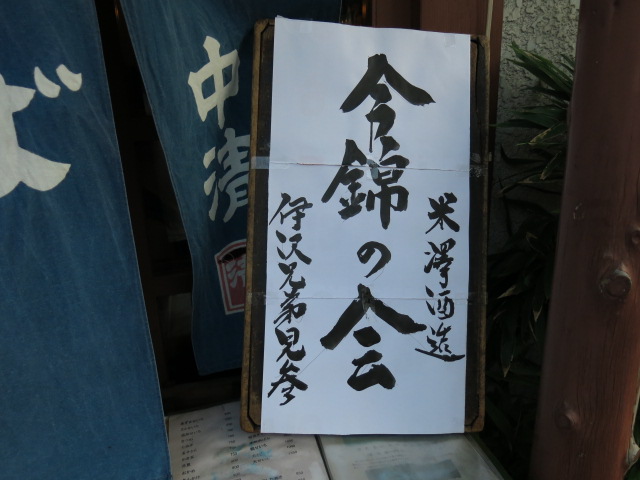 米澤酒造
今錦の会
伊沢兄弟見参
中清
ば